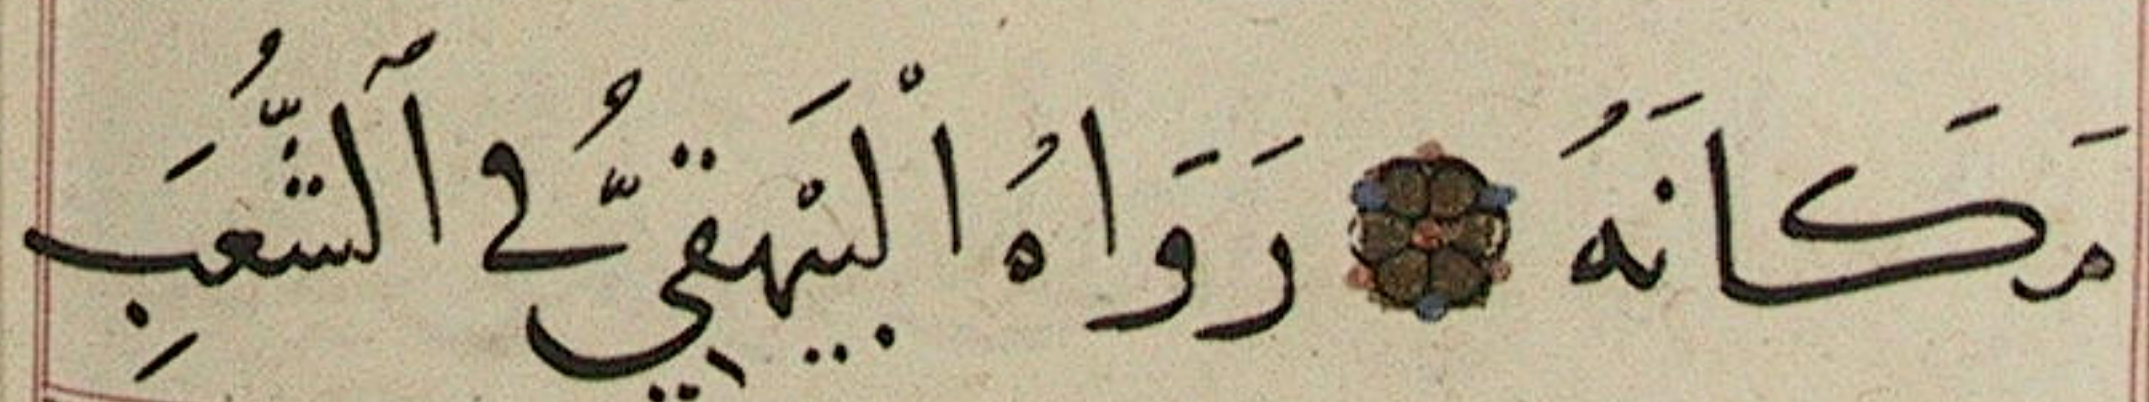 مَكَانَهُ ۞ رَوَاهُ الْبَيْهَقِيُّ فِي الشُّعَبِ